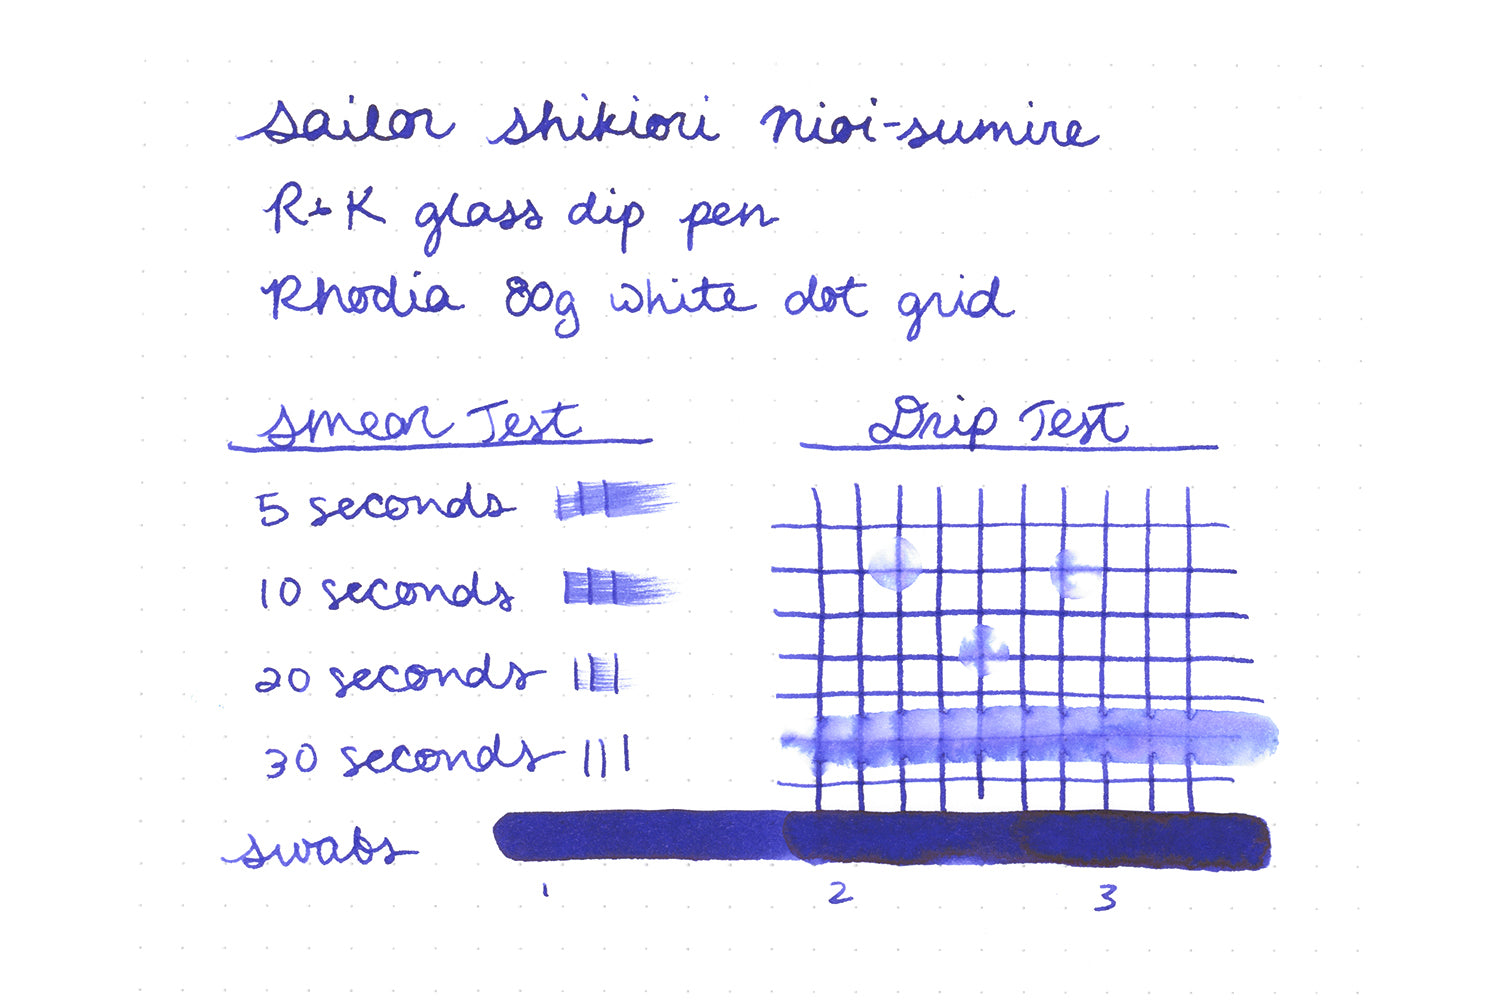 Sailor Shikiori Nioi-sumire
R+K glass dip pen
Rhodia 80g white dot grid
Smear Test
Drip Test
5 seconds
10 seconds
20 seconds
30 seconds
Swabs
1 2 3